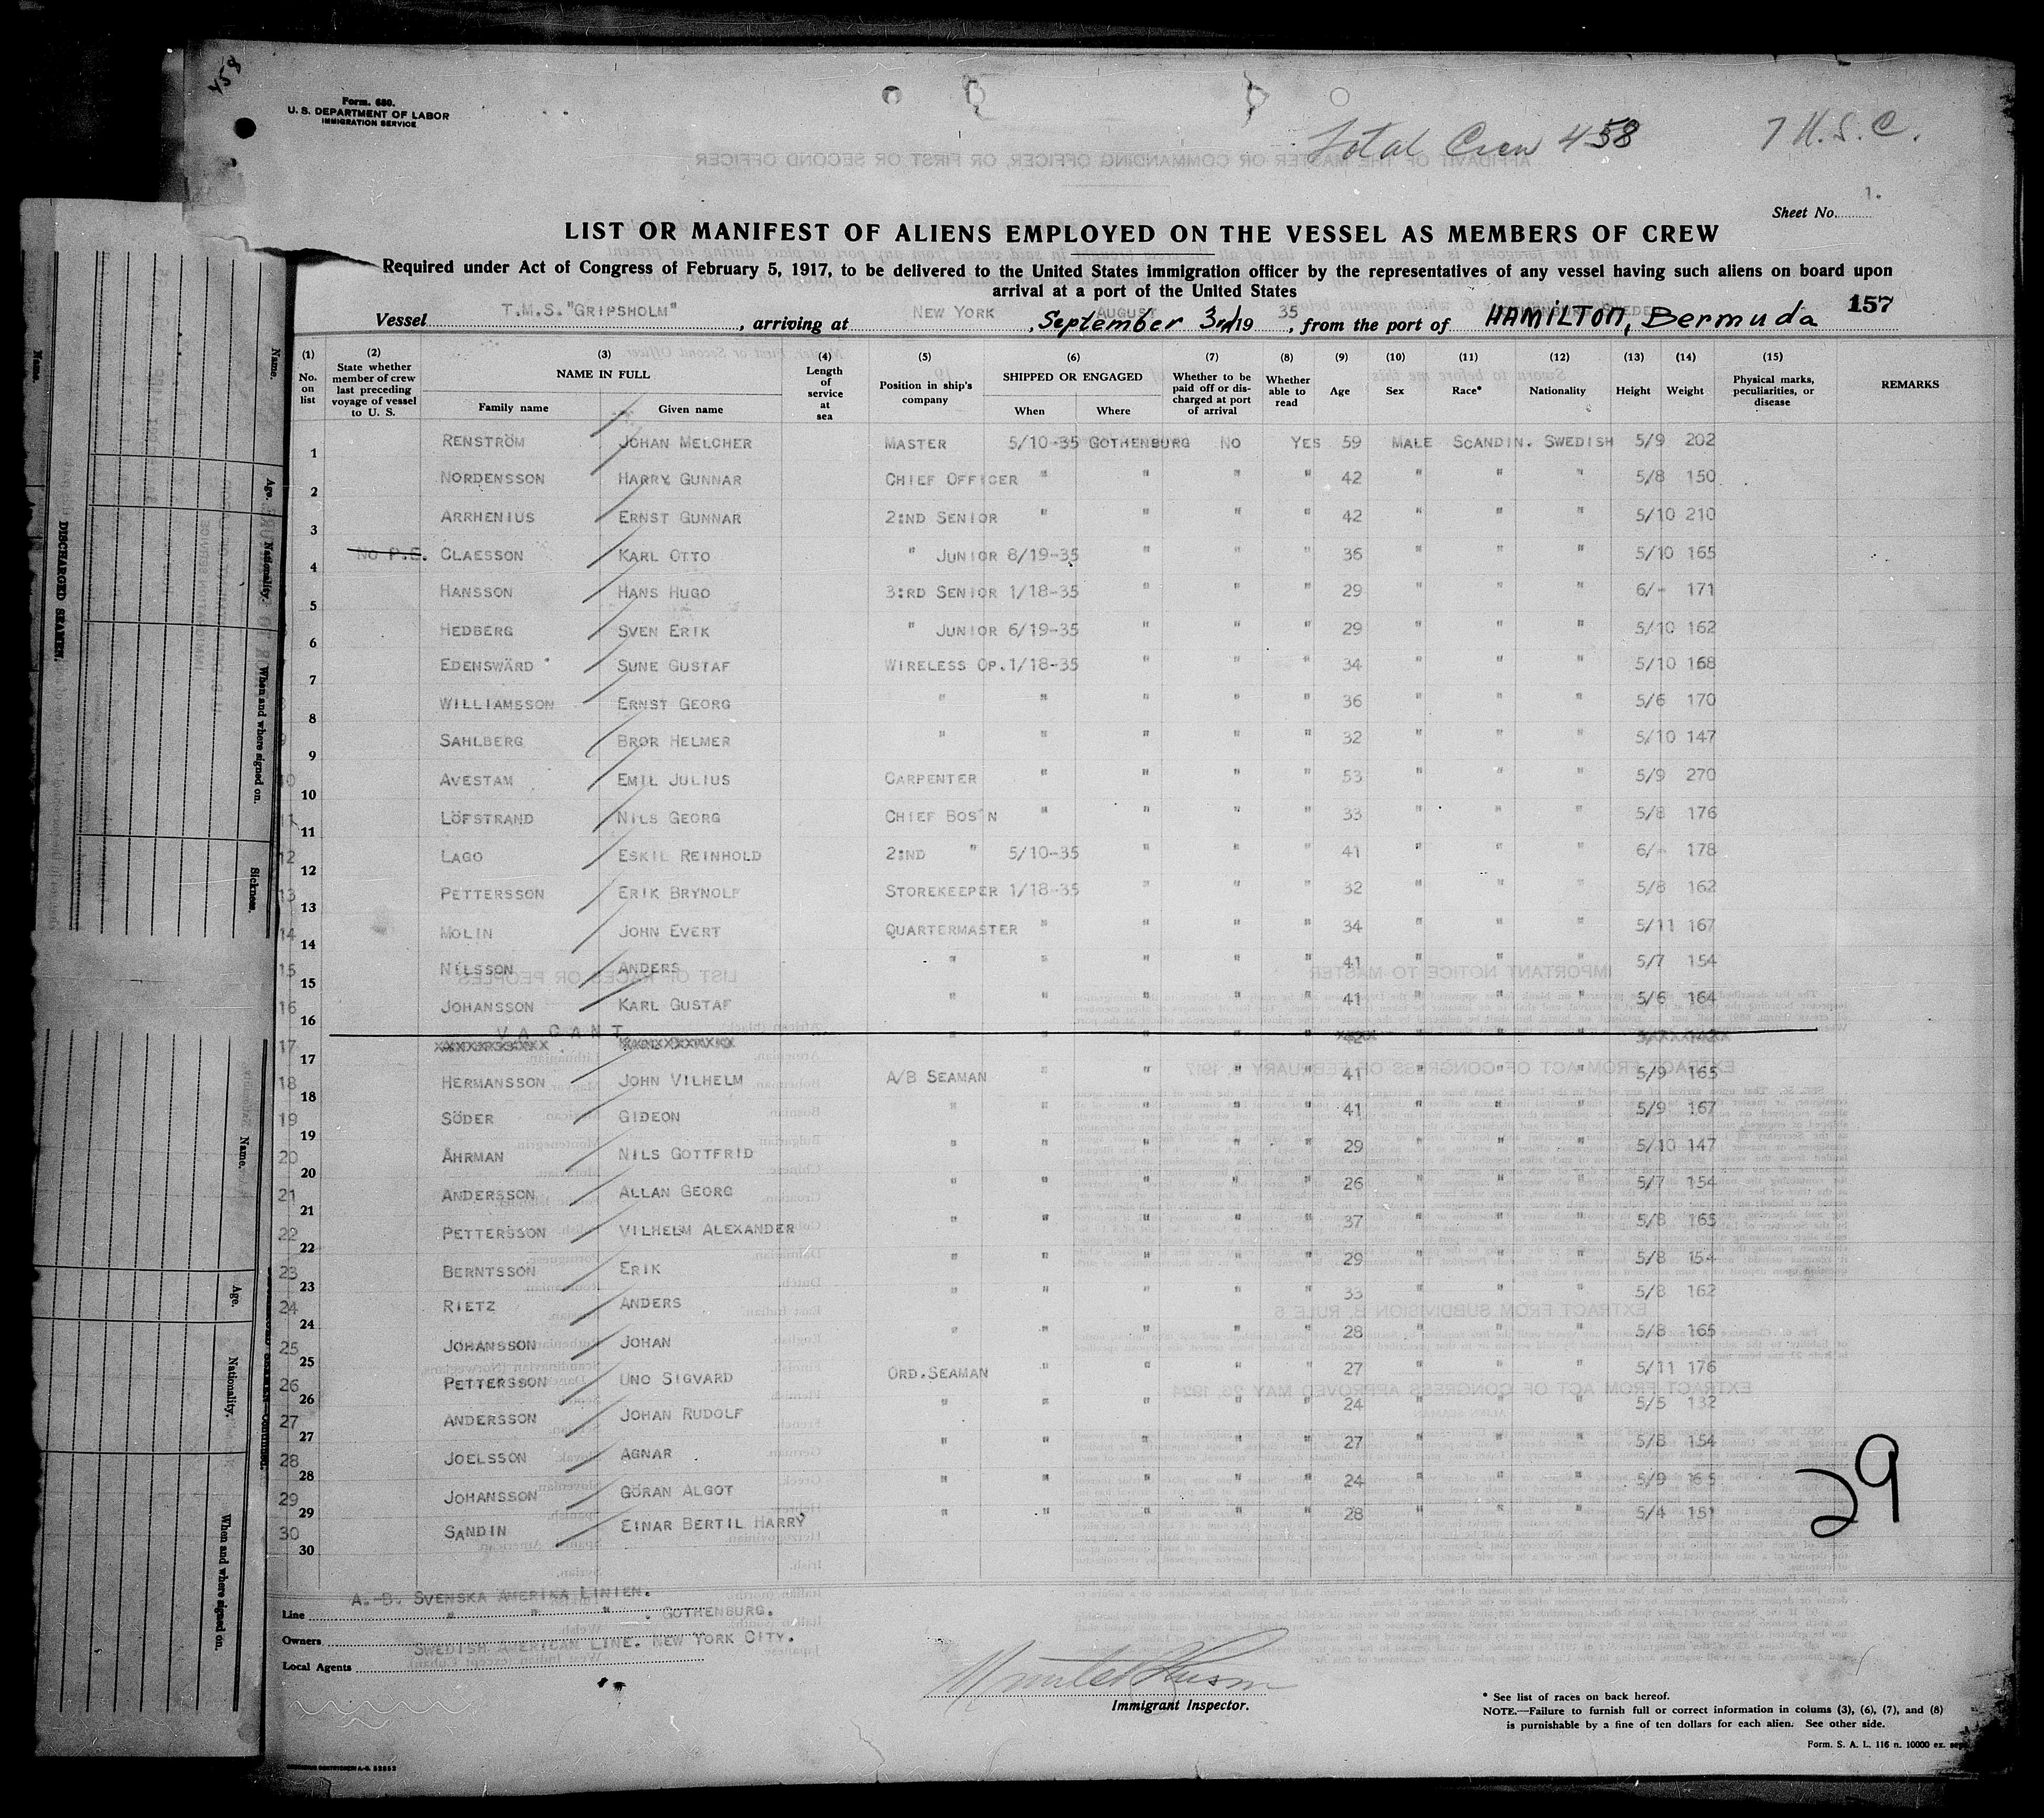 458
Form. 680.
U. S. DEPARTMENT OF LABOR
IMMIGRATION SERVICE
Total Crew 458
7 U.S.C.
Sheet No. 1.
LIST OR MANIFEST OF ALIENS EMPLOYED ON THE VESSEL AS MEMBERS OF CREW
Required under Act of Congress of February 5, 1917, to be delivered to the United States immigration officer by the representatives of any vessel having such aliens on board upon
arrival at a port of the United States
157
Vessel T.M.S. "GRIPSHOLM", arriving at NEW YORK, AUGUST September 3rd 1935, from the port of HAMILTON, Bermuda
(1) No. on list (2) State whether member of crew last preceding voyage of vessel to U. S. (3) NAME IN FULL Family name Given name (4) Length of service at sea (5) Position in ship's company (6) SHIPPED OR ENGAGED When Where (7) Whether to be paid off or discharged at port of arrival (8) Whether able to read (9) Age (10) Sex (11) Race* (12) Nationality (13) Height (14) Weight (15) Physical marks, peculiarities, or disease REMARKS
1 RENSTRÖM JOHAN MELCHER MASTER 5/10-35 GOTHENBURG NO YES 59 MALE SCANDIN. SWEDISH 5/9 202
2 NORDENSSON HARRY GUNNAR CHIEF OFFICER " " " " 42 " " " 5/8 150
3 ARRHENIUS ERNST GUNNAR 2:ND SENIOR " " " " 42 " " " 5/10 210
4 NO P.E. CLAESSON KARL OTTO " JUNIOR 8/19-35 " " " 36 " " " 5/10 165
5 HANSSON HANS HUGO 3:RD SENIOR 1/18-35 " " " 29 " " " 6/- 171
6 HEDBERG SVEN ERIK " JUNIOR 6/19-35 " " " 29 " " " 5/10 162
7 EDENSWÄRD SUNE GUSTAF WIRELESS OP. 1/18-35 " " " 34 " " " 5/10 168
8 WILLIAMSSON ERNST GEORG " " " " " 36 " " " 5/6 170
9 SAHLBERG BROR HELMER " " " " " 32 " " " 5/10 147
10 AVESTAM EMIL JULIUS CARPENTER " " " " 53 " " " 5/9 270
11 LÖFSTRAND NILS GEORG CHIEF BOS'N " " " " 33 " " " 5/8 176
12 LAGO ESKIL REINHOLD 2:ND " 5/10-35 " " " 41 " " " 6/- 178
13 PETTERSSON ERIK BRYNOLF STOREKEEPER 1/18-35 " " " 32 " " " 5/8 162
14 MOLIN JOHN EVERT QUARTERMASTER " " " " 34 " " " 5/11 167
15 NILSSON ANDERS " " " " " 41 " " " 5/7 154
16 JOHANSSON KARL GUSTAF " " " " " 41 " " " 5/6 164
17 VACANT
18 HERMANSSON JOHN VILHELM A/B SEAMAN " " " " 41 " " " 5/9 165
19 SÖDER GIDEON " " " " " 41 " " " 5/9 167
20 ÅHRMAN NILS GOTTFRID " " " " " 29 " " " 5/10 147
21 ANDERSSON ALLAN GEORG " " " " " 26 " " " 5/7 154
22 PETTERSSON VILHELM ALEXANDER " " " " " 37 " " " 5/8 165
23 BERNTSSON ERIK " " " " " 29 " " " 5/8 154
24 RIETZ ANDERS " " " " " 33 " " " 5/8 162
25 JOHANSSON JOHAN " " " " " 28 " " " 5/8 165
26 PETTERSSON UNO SIGVARD ORD.SEAMAN " " " " 27 " " " 5/11 176
27 ANDERSSON JOHAN RUDOLF " " " " " 24 " " " 5/5 132
28 JOELSSON AGNAR " " " " " 27 " " " 5/8 154
29 JOHANSSON GÖRAN ALGOT " " " " " 24 " " " 5/9 165
30 SANDIN EINAR BERTIL HARRY " " " " " 28 " " " 5/4 151
29
Line A.-B. SVENSKA AMERIKA LINIEN.
Owners " " " . GOTHENBURG.
Local Agents SWEDISH AMERICAN LINE. NEW YORK CITY.
Immigrant Inspector.
* See list of races on back hereof.
NOTE.—Failure to furnish full or correct information in colums (3), (6), (7), and (8)
is punishable by a fine of ten dollars for each alien. See other side.
Form. S. A. L. 116 n. 10000 ex.
DISCHARGED SEAMEN.
Name.
Age.
Nationality.
When and where signed on.
Sickness.
Name.
Age.
Nationality.
When and where signed on.